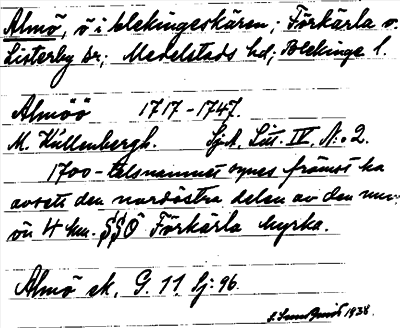 Almö, ö i blekingeskären; Förkärla o.
Listerby sr; Medelstads hd; Blekinge l.
Almöö 1717-1747.
M. Kullenbergh. Sj.A. Litt. IV, N:o 2.
1700-talsnamnet synes främst ha
avsett den nordöstra delen av den nuv.
ön 4 km. SSÖ Förkärla kyrka.
Almö sk. G. 11 Sj: 96.
1938.